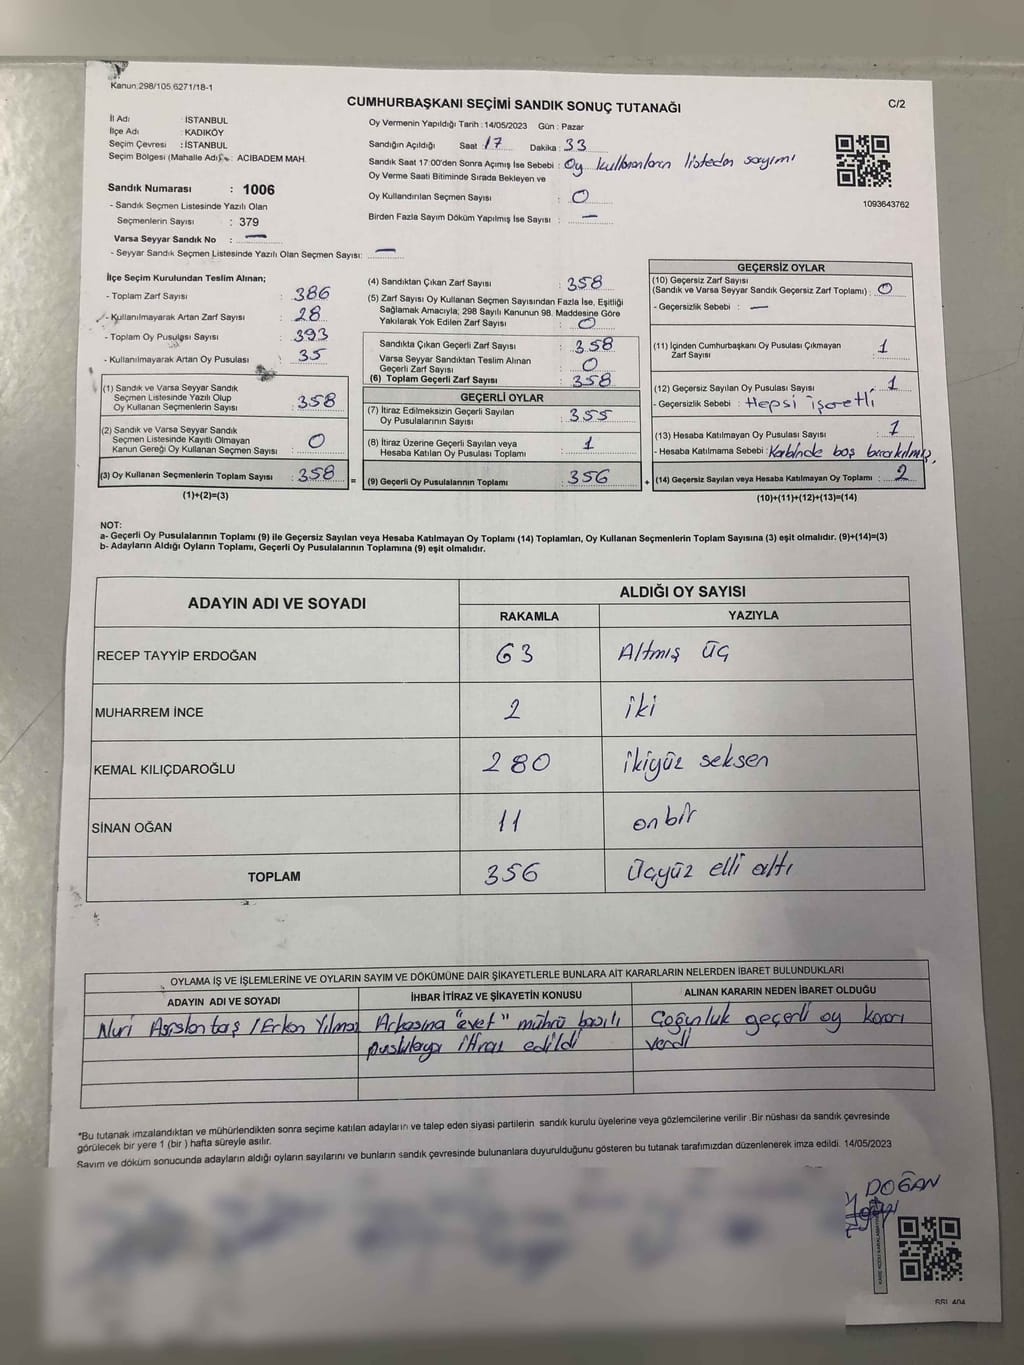 Kanun:298/105,6271/18-1
CUMHURBAŞKANI SEÇİMİ SANDIK SONUÇ TUTANAĞI
C/2
İl Adı : İSTANBUL
İlçe Adı : KADIKÖY
Seçim Çevresi : İSTANBUL
Seçim Bölgesi (Mahalle Adı) : ACIBADEM MAH.
Sandık Numarası : 1006
- Sandık Seçmen Listesinde Yazılı Olan
Seçmenlerin Sayısı : 379
Varsa Seyyar Sandık No : —
- Seyyar Sandık Seçmen Listesinde Yazılı Olan Seçmen Sayısı: —
Oy Vermenin Yapıldığı Tarih : 14/05/2023 Gün : Pazar
Sandığın Açıldığı Saat 17 Dakika : 33
Sandık Saat 17:00'den Sonra Açımış İse Sebebi : Oy kullananların listeden sayımı
Oy Verme Saati Bitiminde Sırada Bekleyen ve
Oy Kullandırılan Seçmen Sayısı : 0
Birden Fazla Sayım Döküm Yapılmış İse Sayısı : —
1093643762
İlçe Seçim Kurulundan Teslim Alınan;
- Toplam Zarf Sayısı : 386
- Kullanılmayarak Artan Zarf Sayısı : 28
- Toplam Oy Pusulası Sayısı : 393
- Kullanılmayarak Artan Oy Pusulası : 35
(1) Sandık ve Varsa Seyyar Sandık
Seçmen Listesinde Yazılı Olup
Oy Kullanan Seçmenlerin Sayısı : 358
(2) Sandık ve Varsa Seyyar Sandık
Seçmen Listesinde Kayıtlı Olmayan
Kanun Gereği Oy Kullanan Seçmen Sayısı : 0
(3) Oy Kullanan Seçmenlerin Toplam Sayısı : 358
(1)+(2)=(3)
(4) Sandıktan Çıkan Zarf Sayısı : 358
(5) Zarf Sayısı Oy Kullanan Seçmen Sayısından Fazla İse, Eşitliği
Sağlamak Amacıyla; 298 Sayılı Kanunun 98. Maddesine Göre
Yakılarak Yok Edilen Zarf Sayısı : 0
Sandıkta Çıkan Geçerli Zarf Sayısı : 358
Varsa Seyyar Sandıktan Teslim Alınan
Geçerli Zarf Sayısı : 0
(6) Toplam Geçerli Zarf Sayısı : 358
GEÇERLİ OYLAR
(7) İtiraz Edilmeksizin Geçerli Sayılan
Oy Pusulalarının Sayısı : 355
(8) İtiraz Üzerine Geçerli Sayılan veya
Hesaba Katılan Oy Pusulası Toplamı : 1
= (9) Geçerli Oy Pusulalarının Toplamı : 356
GEÇERSİZ OYLAR
(10) Geçersiz Zarf Sayısı
(Sandık ve Varsa Seyyar Sandık Geçersiz Zarf Toplamı) : 0
- Geçersizlik Sebebi : —
(11) İçinden Cumhurbaşkanı Oy Pusulası Çıkmayan
Zarf Sayısı : 1
(12) Geçersiz Sayılan Oy Pusulası Sayısı : 1
- Geçersizlik Sebebi : Hepsi işaretli
(13) Hesaba Katılmayan Oy Pusulası Sayısı : 1
- Hesaba Katılmama Sebebi : Kabinde boş bırakılmış.
+ (14) Geçersiz Sayılan veya Hesaba Katılmayan Oy Toplamı : 2
(10)+(11)+(12)+(13)=(14)
NOT:
a- Geçerli Oy Pusulalarının Toplamı (9) ile Geçersiz Sayılan veya Hesaba Katılmayan Oy Toplamı (14) Toplamları, Oy Kullanan Seçmenlerin Toplam Sayısına (3) eşit olmalıdır. (9)+(14)=(3)
b- Adayların Aldığı Oyların Toplamı, Geçerli Oy Pusulalarının Toplamına (9) eşit olmalıdır.
ADAYIN ADI VE SOYADI
ALDIĞI OY SAYISI
RAKAMLA YAZIYLA
RECEP TAYYİP ERDOĞAN 63 Altmış üç
MUHARREM İNCE 2 iki
KEMAL KILIÇDAROĞLU 280 ikiyüz seksen
SİNAN OĞAN 11 onbir
TOPLAM 356 Üçyüz elli altı
OYLAMA İŞ VE İŞLEMLERİNE VE OYLARIN SAYIM VE DÖKÜMÜNE DAİR ŞİKAYETLERLE BUNLARA AİT KARARLARIN NELERDEN İBARET BULUNDUKLARI
ADAYIN ADI VE SOYADI İHBAR İTİRAZ VE ŞİKAYETİN KONUSU ALINAN KARARIN NEDEN İBARET OLDUĞU
Nuri /Erkan Yılmaz Arkasına "evet" mührü basılı Çoğunluk geçerli oy kararı
pusulaya itiraz edildi verdi
*Bu tutanak imzalandıktan ve mühürlendikten sonra seçime katılan adayların ve talep eden siyasi partilerin sandık kurulu üyelerine veya gözlemcilerine verilir .Bir nüshası da sandık çevresinde
görülecek bir yere 1 (bir ) hafta süreyle asılır.
Sayım ve döküm sonucunda adayların aldığı oyların sayılarını ve bunların sandık çevresinde bulunanlara duyurulduğunu gösteren bu tutanak tarafımızdan düzenlenerek imza edildi. 14/05/2023
DOĞAN